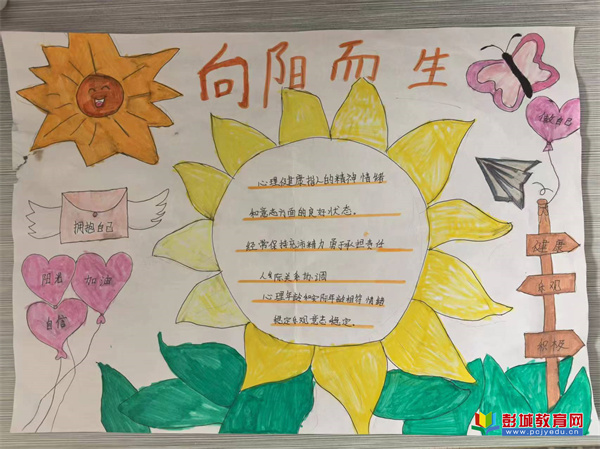 向阳而生
做自己
心理健康指人的精神情绪
和意志方面的良好状态。
经常保持充沛精力勇于承担责任
人际关系协调
心理年龄和实际年龄相符情绪
稳定乐观意志坚定。
拥抱自己
阳光
加油
自信
健康
乐观
积极
彭城教育网
www.pcjyedu.cn